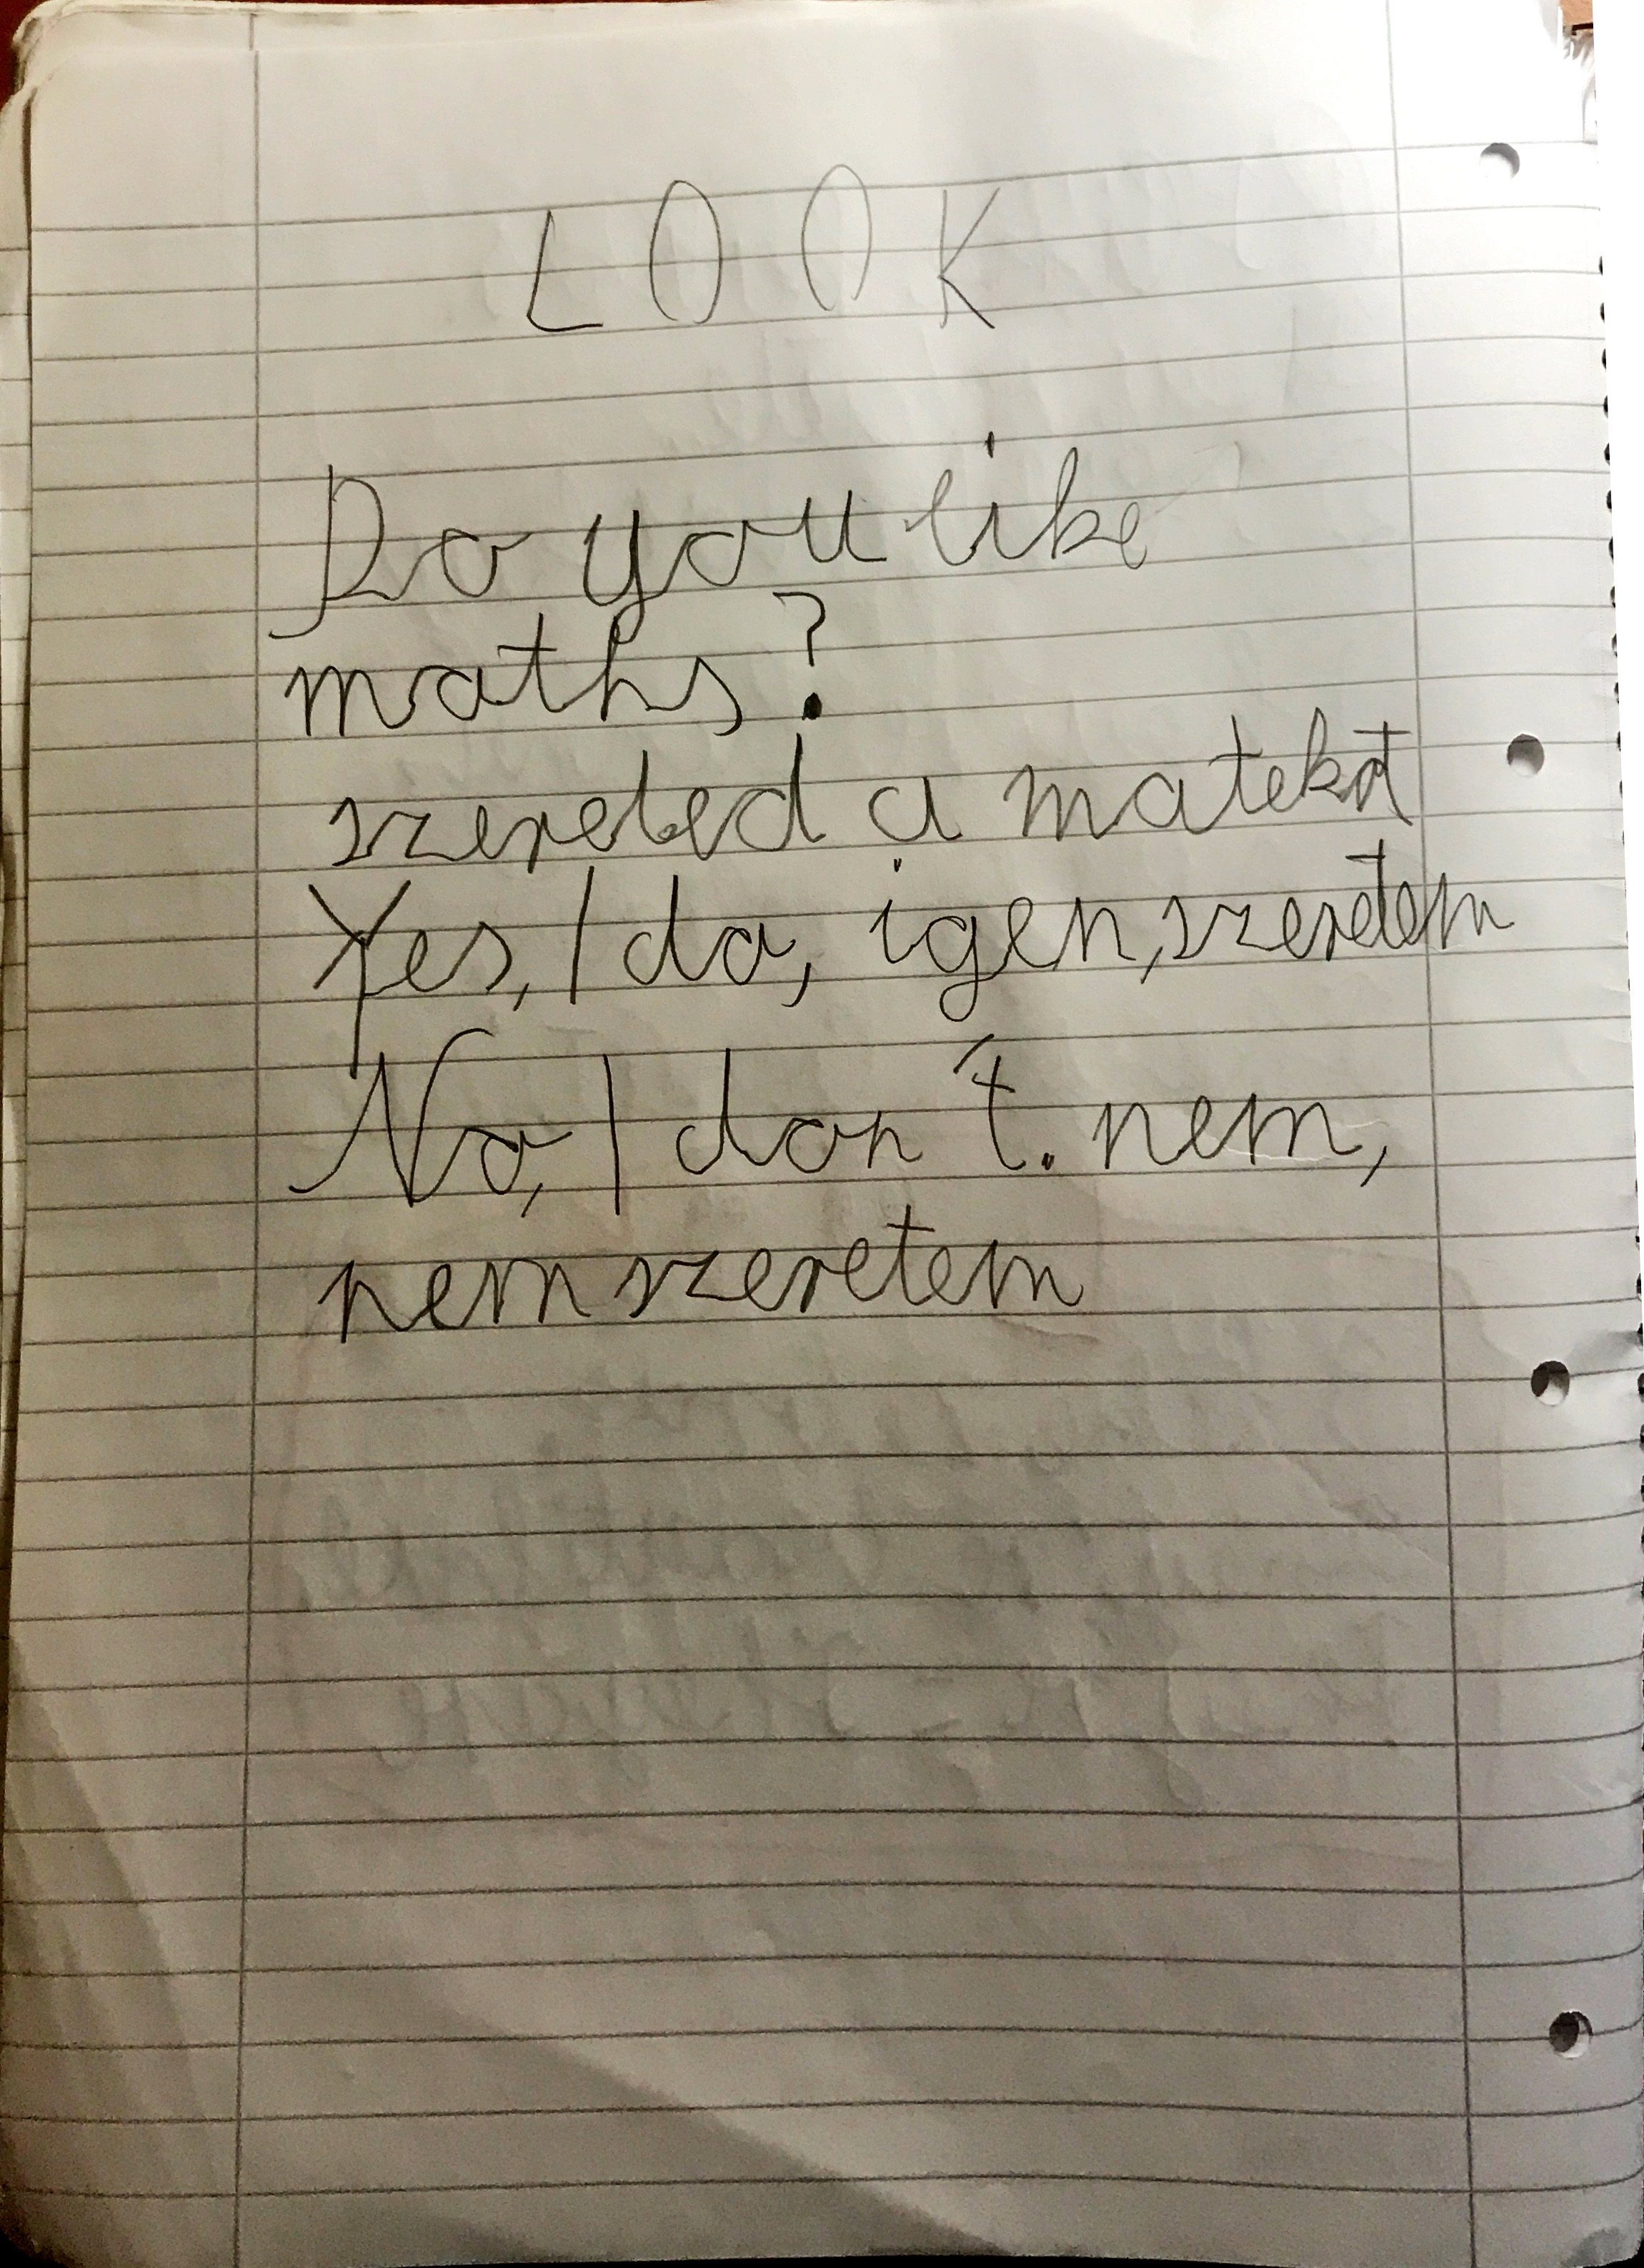 LOOK
Do you like
maths?
szereted a matekot
Yes, I do, igen, szeretem
No, I don't. nem,
nem szeretem